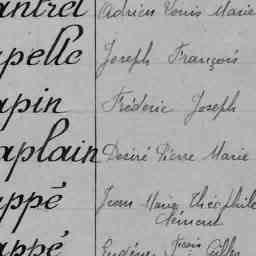 antrel Adrien Louis Marie
apelle Joseph François
apin Frédéric Joseph
aplain Desiré Pierre Marie
appé Jean Marie Théophile
Clément
appé Eugène Francis Gilles